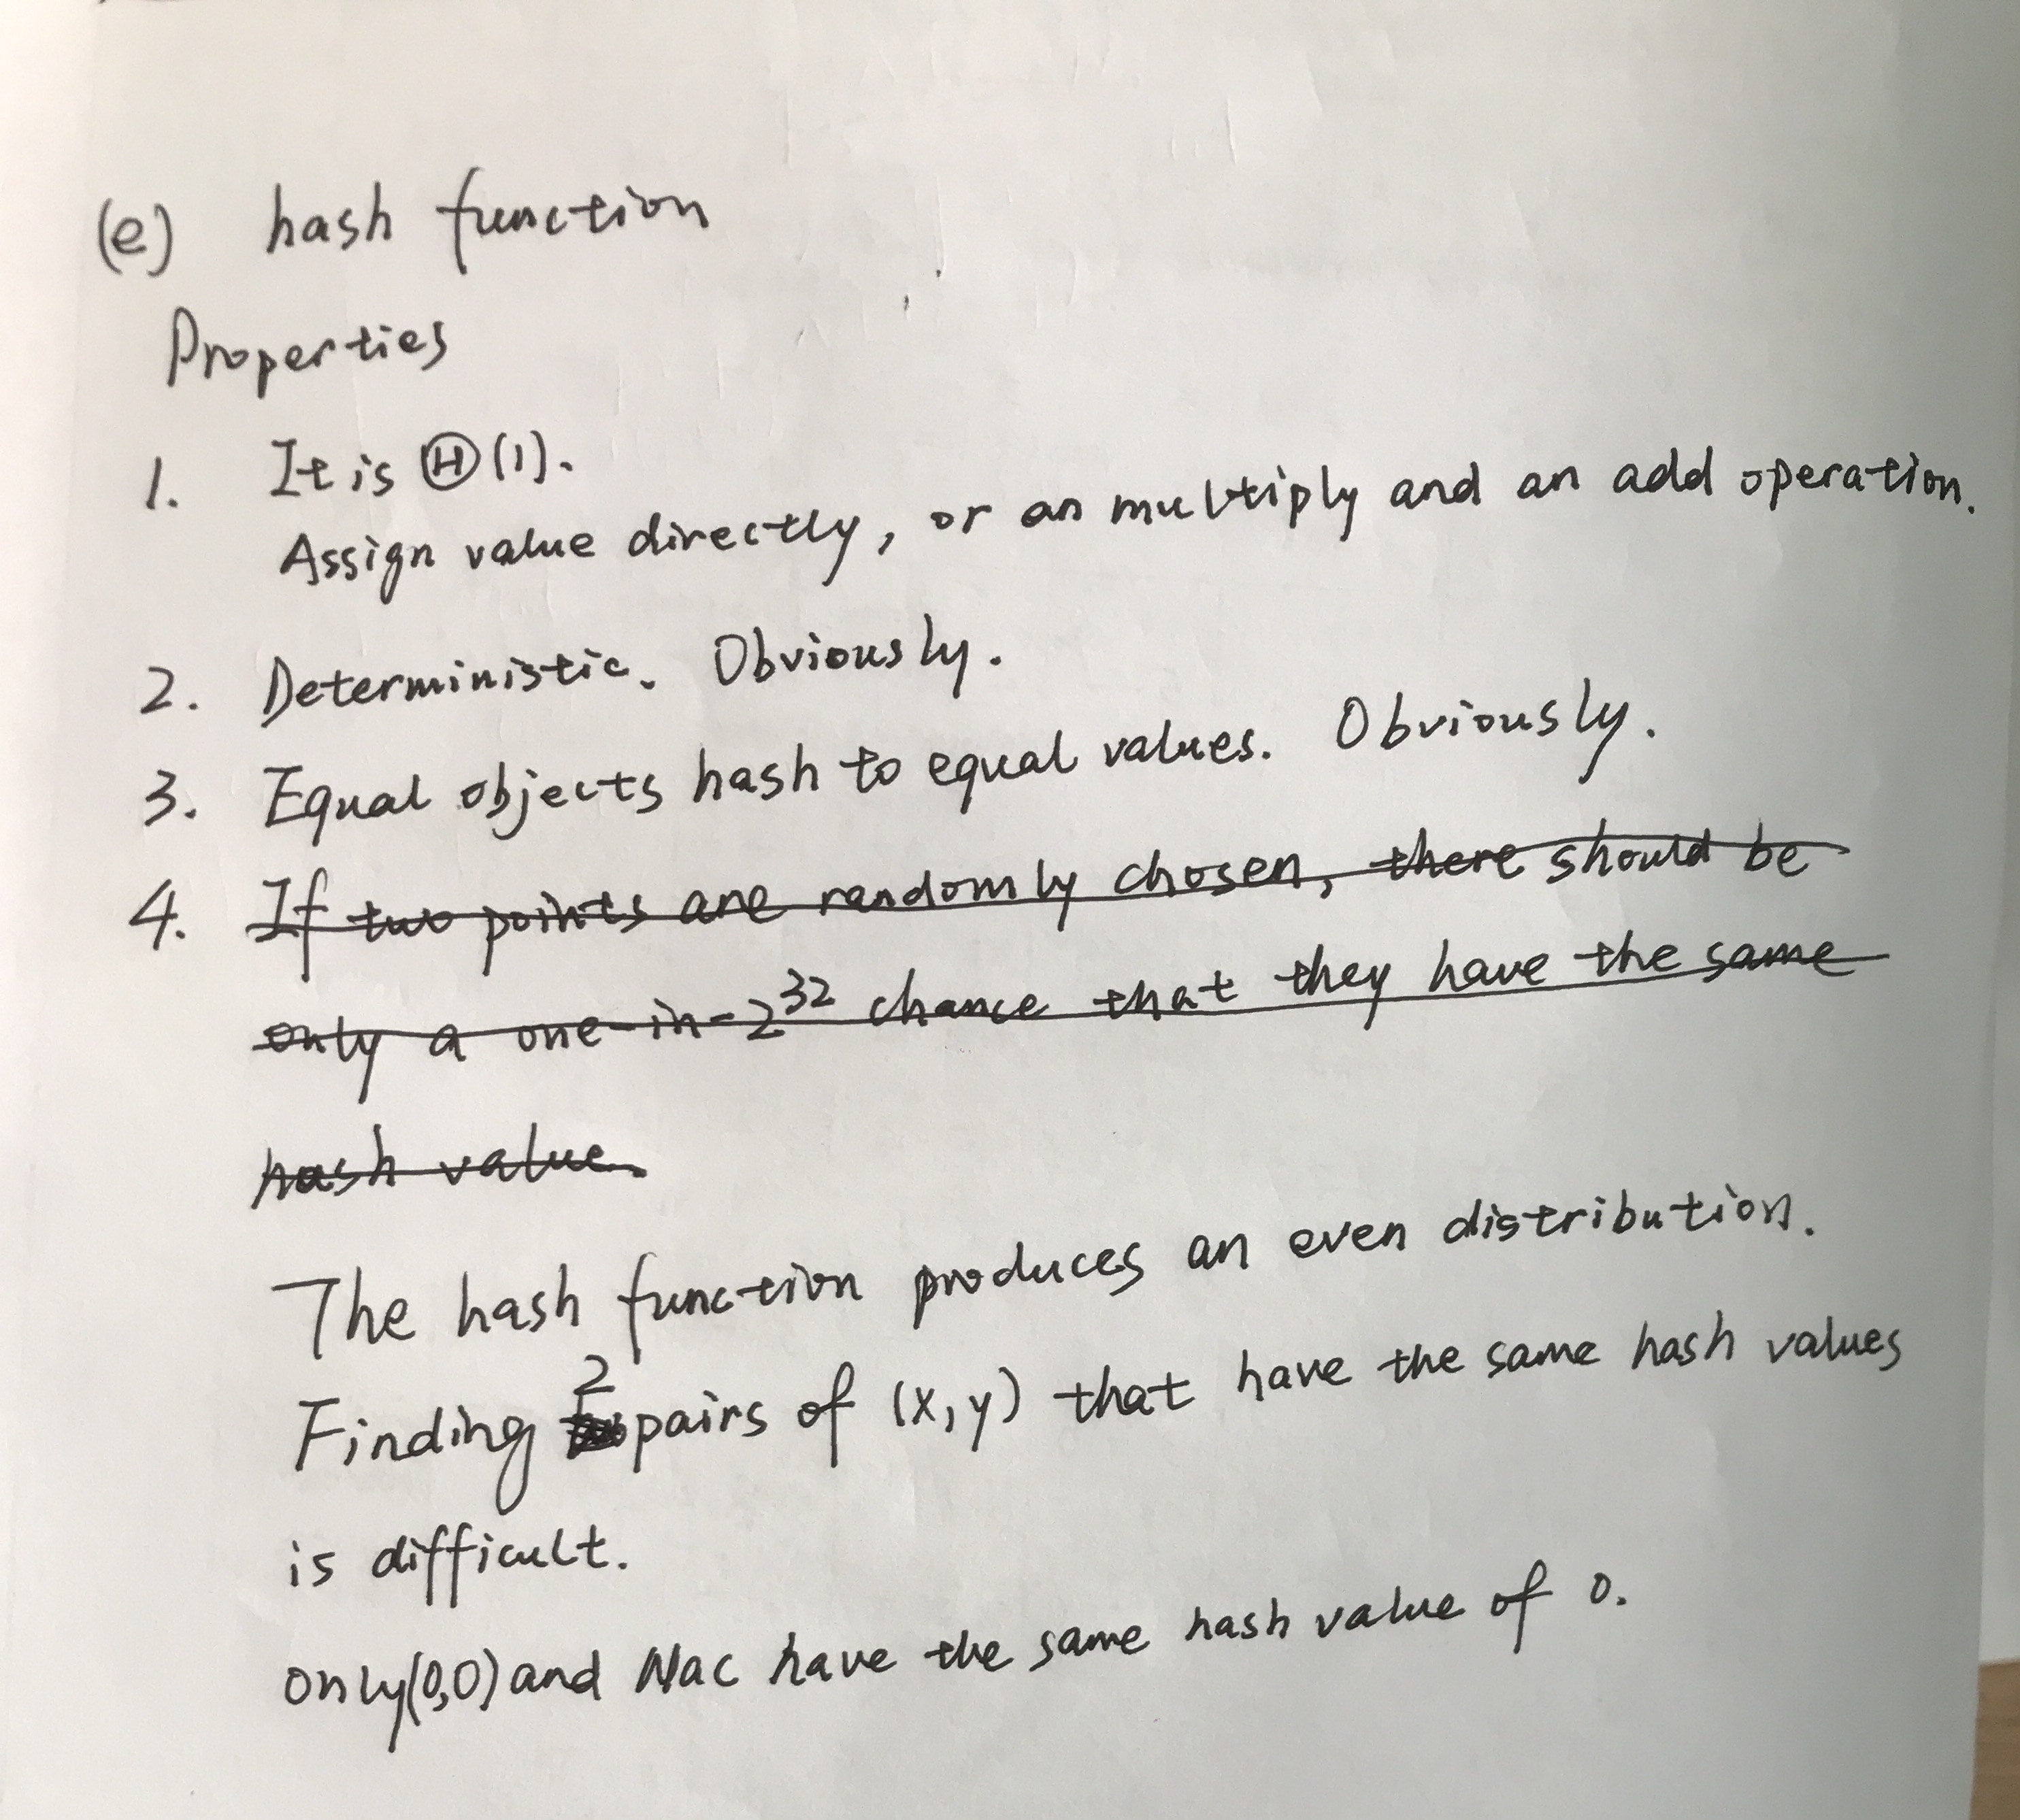 (e) hash function
Properties
1. It is Θ(1).
Assign value directly, or an multiply and an add operation.
2. Deterministic. Obviously.
3. Equal objects hash to equal values. Obviously.
4. If two points are randomly chosen, there should be
only a one-in-2^32 chance that they have the same
hash value.
The hash function produces an even distribution.
Finding 2 pairs of (x,y) that have the same hash values
is difficult.
only(0,0) and Nac have the same hash value of 0.